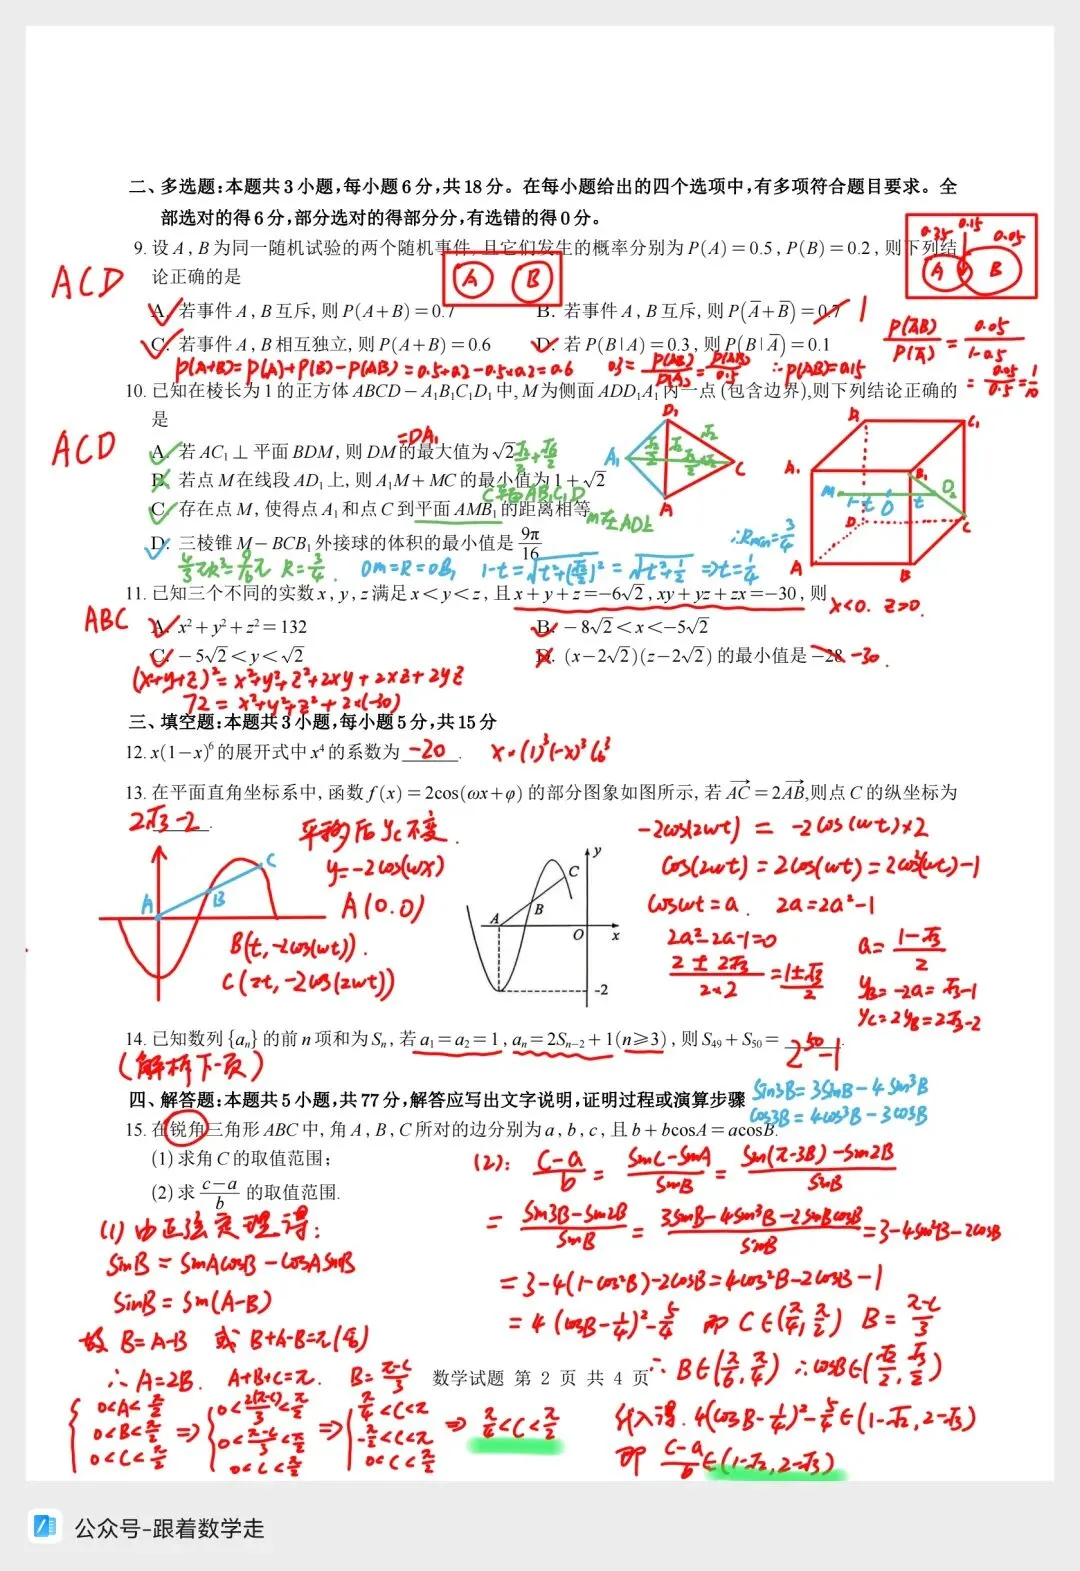 二、多选题:本题共3小题,每小题6分,共18分。在每小题给出的四个选项中,有多项符合题目要求。全
部选对的得6分,部分选对的得部分分,有选错的得0分。
0.35 0.15 0.05
A B
9. 设A,B为同一随机试验的两个随机事件,且它们发生的概率分别为P(A)=0.5,P(B)=0.2,则下列结
论正确的是
ACD
A B
A. 若事件A,B互斥,则P(A+B)=0.7
B. 若事件A,B互斥,则P(A̅+B̅)=0.7 1
C. 若事件A,B相互独立,则P(A+B)=0.6
D. 若P(B|A)=0.3,则P(B|A̅)=0.1
P(A̅B)/P(A̅)=0.05/(1-0.5)
=0.05/0.5=1/10
P(A+B)=P(A)+P(B)-P(AB)=0.5+0.2-0.5×0.2=0.6
0.3=P(AB)/P(A)=P(AB)/0.5 ∴P(AB)=0.15
10. 已知在棱长为1的正方体ABCD-A₁B₁C₁D₁中,M为侧面ADD₁A₁内一点(包含边界),则下列结论正确的
是
ACD
=DA₁
A. 若AC₁⊥平面BDM,则DM的最大值为√2
√2/2+√6/2
B. 若点M在线段AD₁上,则A₁M+MC的最小值为1+√2
C. 存在点M,使得点A₁和点C到平面AMB₁的距离相等
D. 三棱锥M-BCB₁外接球的体积的最小值是9π/16
4/3πR³=9/16π R=3/4.
OM=R=OB₁ 1-t=√(t²+(√2/2)²)=√(t²+1/2)⇒t=1/4
∴Rmin=3/4
11. 已知三个不同的实数x,y,z满足x<y<z,且x+y+z=-6√2,xy+yz+zx=-30,则
x<0. z>0.
ABC
A. x²+y²+z²=132
B. -8√2<x<-5√2
C. -5√2<y<√2
D. (x-2√2)(z-2√2)的最小值是-28 -30.
(x+y+z)²=x²+y²+z²+2xy+2xz+2yz
72=x²+y²+z²+2×(-30)
三、填空题:本题共3小题,每小题5分,共15分
12. x(1-x)⁶的展开式中x⁴的系数为 -20 .
x·(1)³(-x)³C₆³
13. 在平面直角坐标系中,函数f(x)=2cos(ωx+φ)的部分图象如图所示,若AC→=2AB→,则点C的纵坐标为
2√3-2.
平移后yc不变.
y=-2cos(ωx)
A(0.0)
B(t,-2cos(ωt)).
C(2t,-2cos(2ωt))
A B C
A B C O x y -2
-2cos(2ωt)=-2cos(ωt)×2
cos(2ωt)=2cos(ωt)=2cos²(ωt)-1
cosωt=a. 2a=2a²-1
2a²-2a-1=0
(2±2√3)/(2×2)=(1±√3)/2
a=(1-√3)/2
yB=-2a=√3-1
yC=2yB=2√3-2
14. 已知数列{aₙ}的前n项和为Sₙ,若a₁=a₂=1,aₙ=2Sₙ₋₂+1(n≥3),则S₄₉+S₅₀= 2⁵⁰-1 .
(解析下一页)
四、解答题:本题共5小题,共77分,解答应写出文字说明,证明过程或演算步骤
sin3B=3sinB-4sin³B
cos3B=4cos³B-3cosB
15. 在锐角三角形ABC中,角A,B,C所对的边分别为a,b,c,且b+bcosA=acosB.
(1)求角C的取值范围;
(2)求(c-a)/b的取值范围.
(1)由正弦定理得:
sinB=sinAcosB-cosAsinB
sinB=sin(A-B)
故B=A-B 或B+A-B=π(舍)
∴A=2B. A+B+C=π. B=(π-C)/3
{0<A<π/2 0<B<π/2 0<C<π/2 ⇒ {0<2(π-C)/3<π/2 0<(π-C)/3<π/2 0<C<π/2 ⇒ {π/4<C<π -π/2<C<π 0<C<π/2 ⇒ π/4<C<π/2
(2): (c-a)/b=(sinC-sinA)/sinB=(sin(π-3B)-sin2B)/sinB
=(sin3B-sin2B)/sinB=(3sinB-4sin³B-2sinBcosB)/sinB=3-4sin²B-2cosB
=3-4(1-cos²B)-2cosB=4cos²B-2cosB-1
=4(cosB-1/4)²-5/4 而C∈(π/4,π/2) B=(π-C)/3
∴B∈(π/6,π/4) ∴cosB∈(√2/2,√3/2)
代入得.4(cosB-1/4)²-5/4∈(1-√2,2-√3)
即(c-a)/b∈(1-√2,2-√3)
数学试题 第 2 页 共 4 页
公众号-跟着数学走